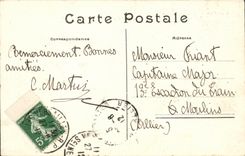 Carte Postale
Correspondance
Adresse
Remerciement. Bonnes
amitiés.
C. Martin
Monsieur Friant
Capitaine Major
12e Escadron du train
à Moulins
(Allier)